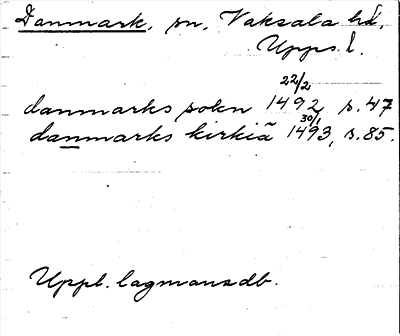 Danmark, sn, Vaksala hd,
Upps. l.
danmarks sokn 22/2 1492, s. 47
danmarks kirkiä 30/1 1493, s. 85.
Uppl. lagmansdb.